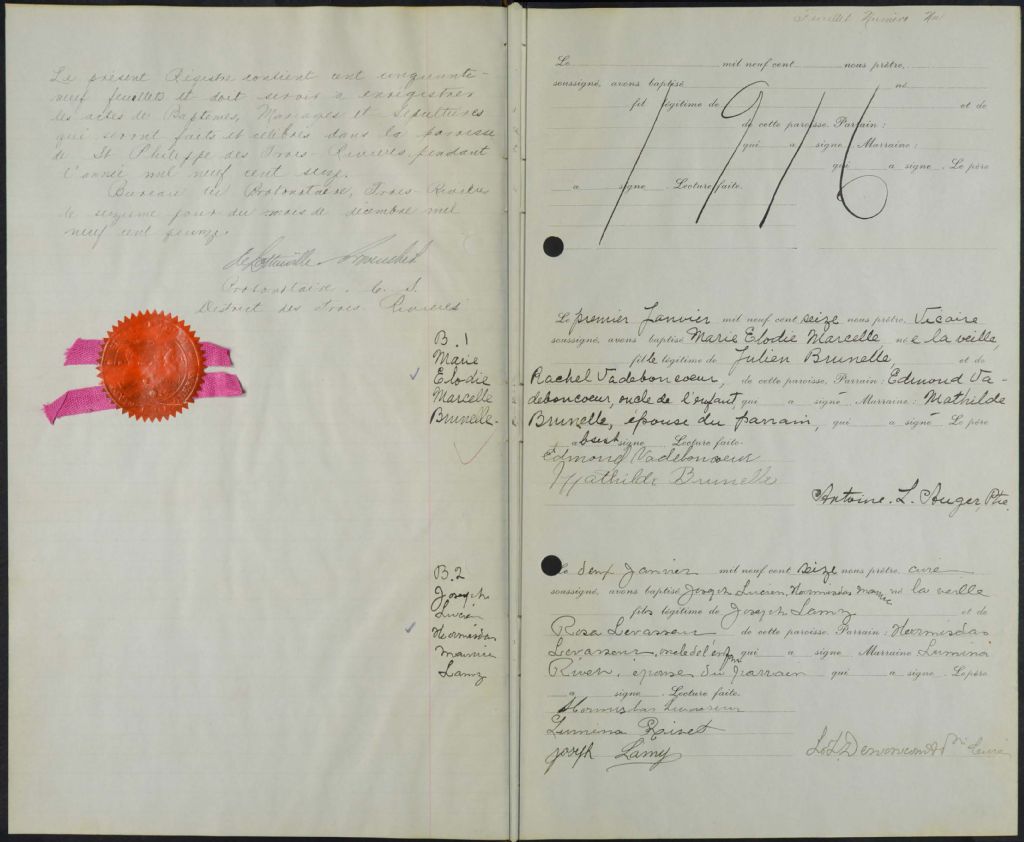 Le présent Régistre contient cent cinquante-
neuf feuillets et doit servir a enregistrer
les actes de Baptêmes, Mariages et Sépultures
qui seront faits et célébrés dans la paroisse
de St Philippe des Trois-Rivières, pendant
l'année mil neuf cent seize.
Bureau du Protonotaire, Trois-Rivières
le seizième jour du mois de décembre mil
neuf cent quinze.
Protonotaire. C. S.
District des Trois-Rivières
B. 1
Marie
Elodie
Marcelle
Brunelle.
B. 2
Joseph
Lucien
Hermisdas
Maurice
Lamy
Feuillet Numéro
Le mil neuf cent nous prêtre,
soussigné, avons baptisé né
fil légitime de et de
de cette paroisse. Parrain :
qui a signé. Marraine :
qui a signé. Le père
a signé. Lecture faite.
1916
Le premier Janvier mil neuf cent seize nous prêtre, Vicaire
soussigné, avons baptisé Marie Elodie Marcelle née la veille,
fille légitime de Julien Brunelle, et de
Rachel Vadeboncoeur, de cette paroisse. Parrain : Edmond Va-
deboncoeur, oncle de l'enfant, qui a signé Marraine : Mathilde
Brunelle, épouse du parrain, qui a signé. Le père
absent signé Lecture faite.
Edmond Vadeboncoeur
Mathilde Brunelle
Antoine. L. Auger, Ptre.
Le deux Janvier mil neuf cent seize nous prêtre, curé
soussigné, avons baptisé Joseph Lucien Hermisdas Maurice né la veille
fils légitime de Joseph Lamy et de
Rosa Levasseur de cette paroisse. Parrain : Hermisdas
Levasseur, oncle de l'enfant qui a signé Marraine Lumina
Rivet, épouse du parrain qui a signé. Le père
a signé. Lecture faite.
Hermisdas Levasseur
Lumina Rivet
Joseph Lamy